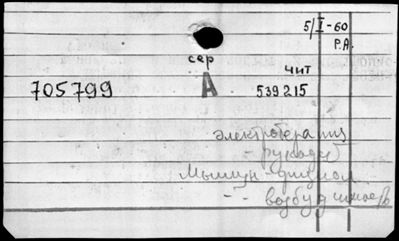 5/I-60
Р.А.
сер
чит
705799 А 539215
электротерапия
- руковод)
Мышцы - физиол
-- возбудимость